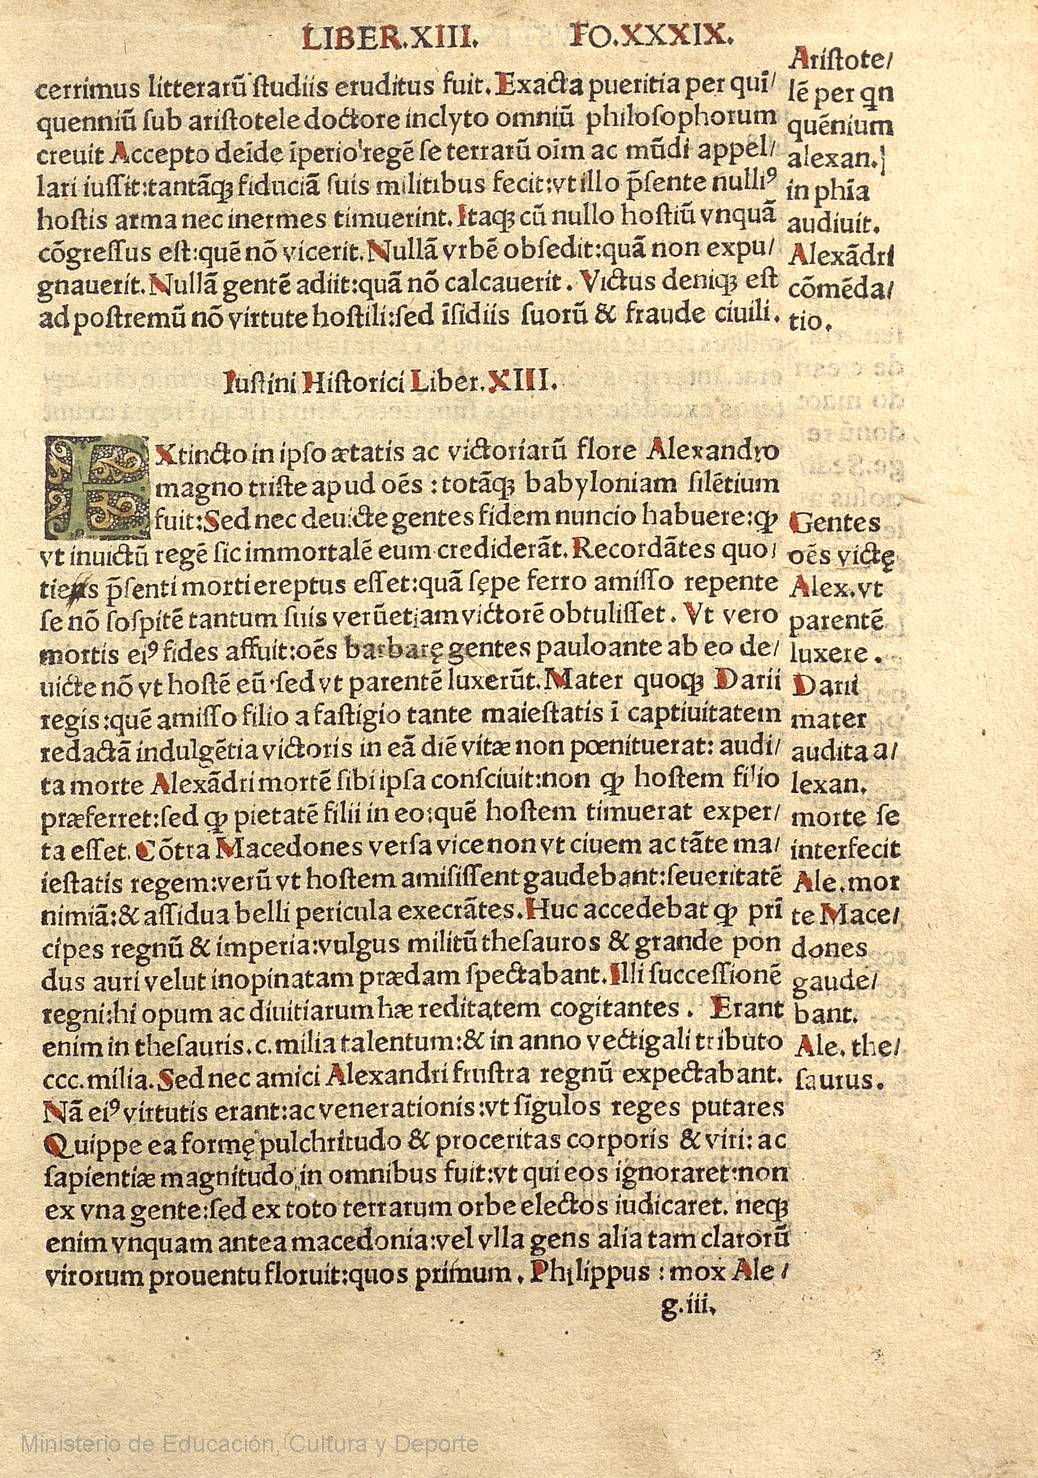 LIBER.XIII. FO.XXXIX.
cerrimus litterarū ſtudiis eruditus fuit. Exacta pueritia per quī/
quenniū ſub ariſtotele doctore inclyto omniū philoſophorum
creuit Accepto deīde īperio regē ſe terrarū oīm ac mūdi appel/
lari iuſſit:tantāqꝫ fiduciā ſuis militibus fecit:vt illo p̄ſente nulliꝰ
hoſtis arma nec inermes timuerint. Itaqꝫ cū nullo hoſtiū vnquā
cōgreſſus eſt:quē nō vicerit. Nullā vrbē obſedit:quā non expu/
gnauerit. Nullā gentē adiit:quā nō calcauerit. Victus deniqꝫ eſt
ad poſtremū nō virtute hoſtili:ſed īſidiis ſuorū & fraude ciuili.
Ariſtote/
lē per qn
quēnium
alexan.]
in phīa
audiuit.
Alexādri
cōmēda/
tio.
Iuſtini Hiſtorici Liber.XIII.
EXtincto in ipſo ætatis ac victoriarū flore Alexandro
magno triſte apud oēs : totāqꝫ babyloniam ſilētium
fuit:Sed nec deuicte gentes fidem nuncio habuere:ꝙ
vt inuictū regē ſic immortalē eum crediderāt. Recordātes quo/
tiens p̄ſenti morti ereptus eſſet:quā ſępe ferro amiſſo repente
ſe nō ſoſpitē tantum ſuis verūetiam victorē obtuliſſet. Vt vero
mortis eiꝰ fides affuit:oēs barbarę gentes pauloante ab eo de/
uicte nō vt hoſtē eū ſed vt parentē luxerūt. Mater quoqꝫ Darii
regis:quē amiſſo filio a faſtigio tante maieſtatis ī captiuitatem
redactā indulgētia victoris in eā diē vitæ non pœnituerat: audi/
ta morte Alexādri mortē ſibi ipſa conſciuit:non ꝙ hoſtem filio
præferret:ſed ꝙ pietatē filii in eo:quē hoſtem timuerat exper/
ta eſſet. Cōtra Macedones verſa vice non vt ciuem ac tāte ma/
ieſtatis regem:verū vt hoſtem amiſiſſent gaudebant:ſeueritatē
nimiā:& aſſidua belli pericula execrātes. Huc accedebat ꝙ prī
cipes regnū & imperia:vulgus militū theſauros & grande pon
dus auri velut inopinatam prædam ſpectabant. Illi ſucceſſionē
regni:hi opum ac diuitiarum hæreditatem cogitantes. Erant
enim in theſauris.c.milia talentum:& in anno vectigali tributo
ccc.milia. Sed nec amici Alexandri fruſtra regnū expectabant.
Nā eiꝰ virtutis erant:ac venerationis:vt ſīgulos reges putares
Quippe ea formę pulchritudo & proceritas corporis & viri: ac
ſapientiæ magnitudo in omnibus fuit:vt qui eos ignoraret:non
ex vna gente:ſed ex toto terrarum orbe electos iudicaret. neqꝫ
enim vnquam antea macedonia:vel vlla gens alia tam clarorū
virorum prouentu floruit:quos primum. Philippus : mox Ale/
Gentes
oēs victę
Alex.vt
parentē
luxere.
Darii
mater
audita a/
lexan.
morte ſe
interfecit
Ale.mor
te Mace/
dones
gaude/
bant.
Ale.the/
ſaurus.
g.iii.
Ministerio de Educación, Cultura y Deporte